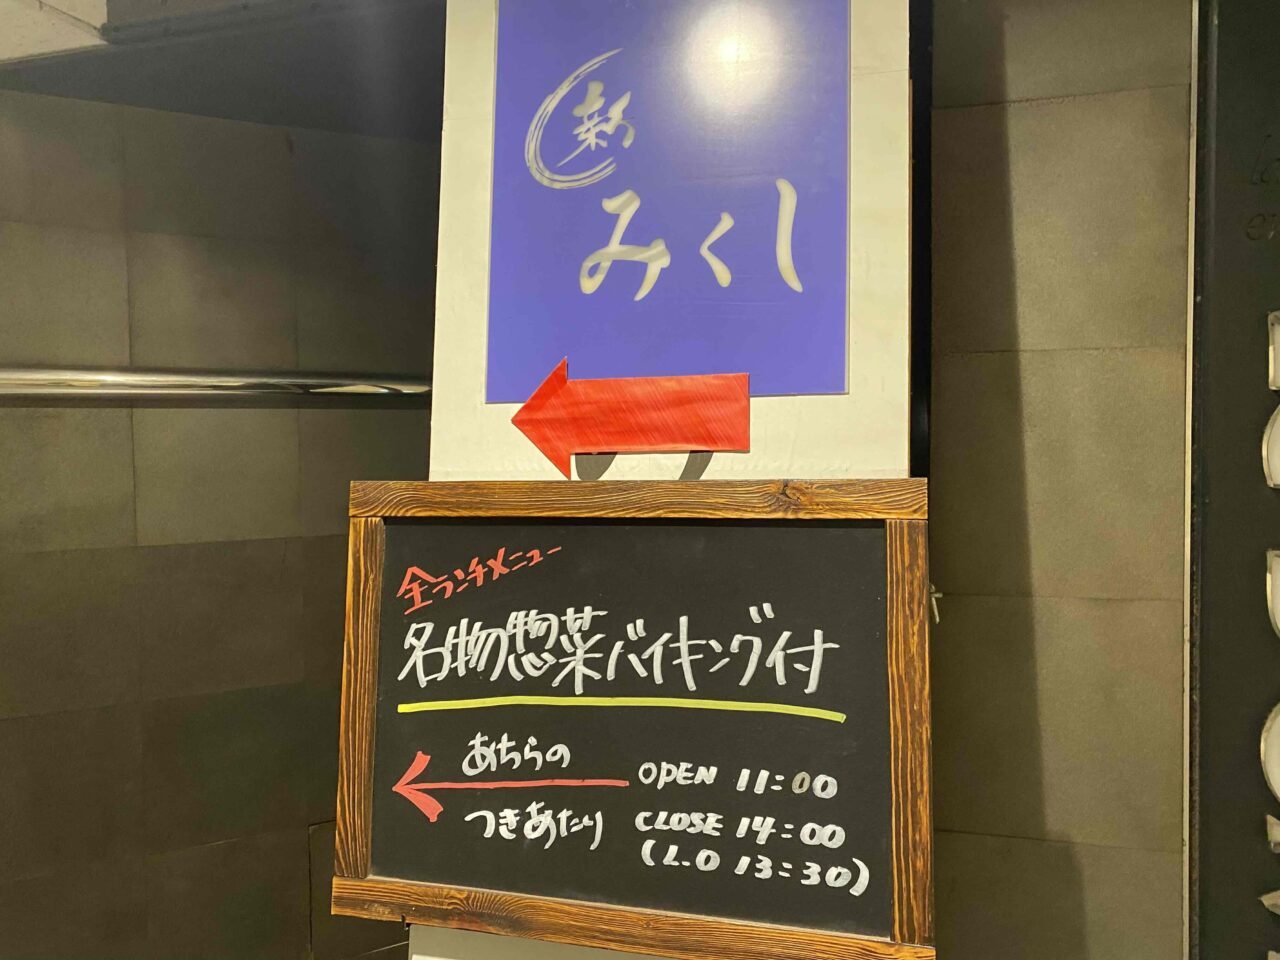 新
みくし
全ランチメニュー
名物惣菜バイキング付
あちらの
つきあたり
OPEN 11:00
CLOSE 14:00
(L.O 13:30)